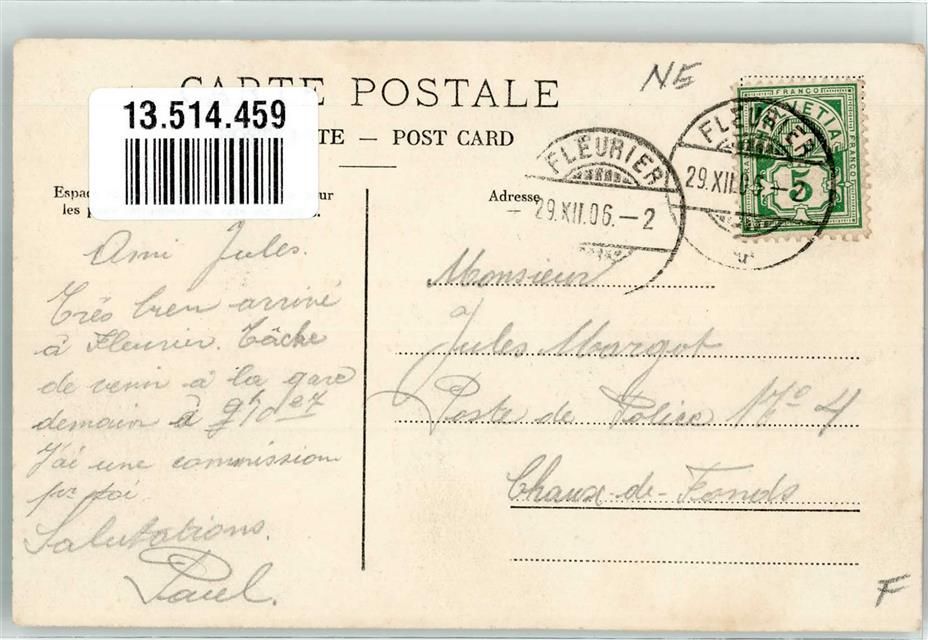 CARTE POSTALE
13.514.459
TE — POST CARD
NE
Espac
ur
les p
Adresse
FLEURIER
29.XII.06.—2
FLEURIER
29.XII.06.—2
FRANCO
HELVETIA
FRANCO
5
Ami Jules.
Très bien arrivé
à Fleurier. Tâche
de venir à la gare
demain à 9h 07
J'ai une commission
pr toi
Salutations.
Paul.
Monsieur
à
Jules Margot
Poste de Police No 4
Chaux-de-Fonds
F